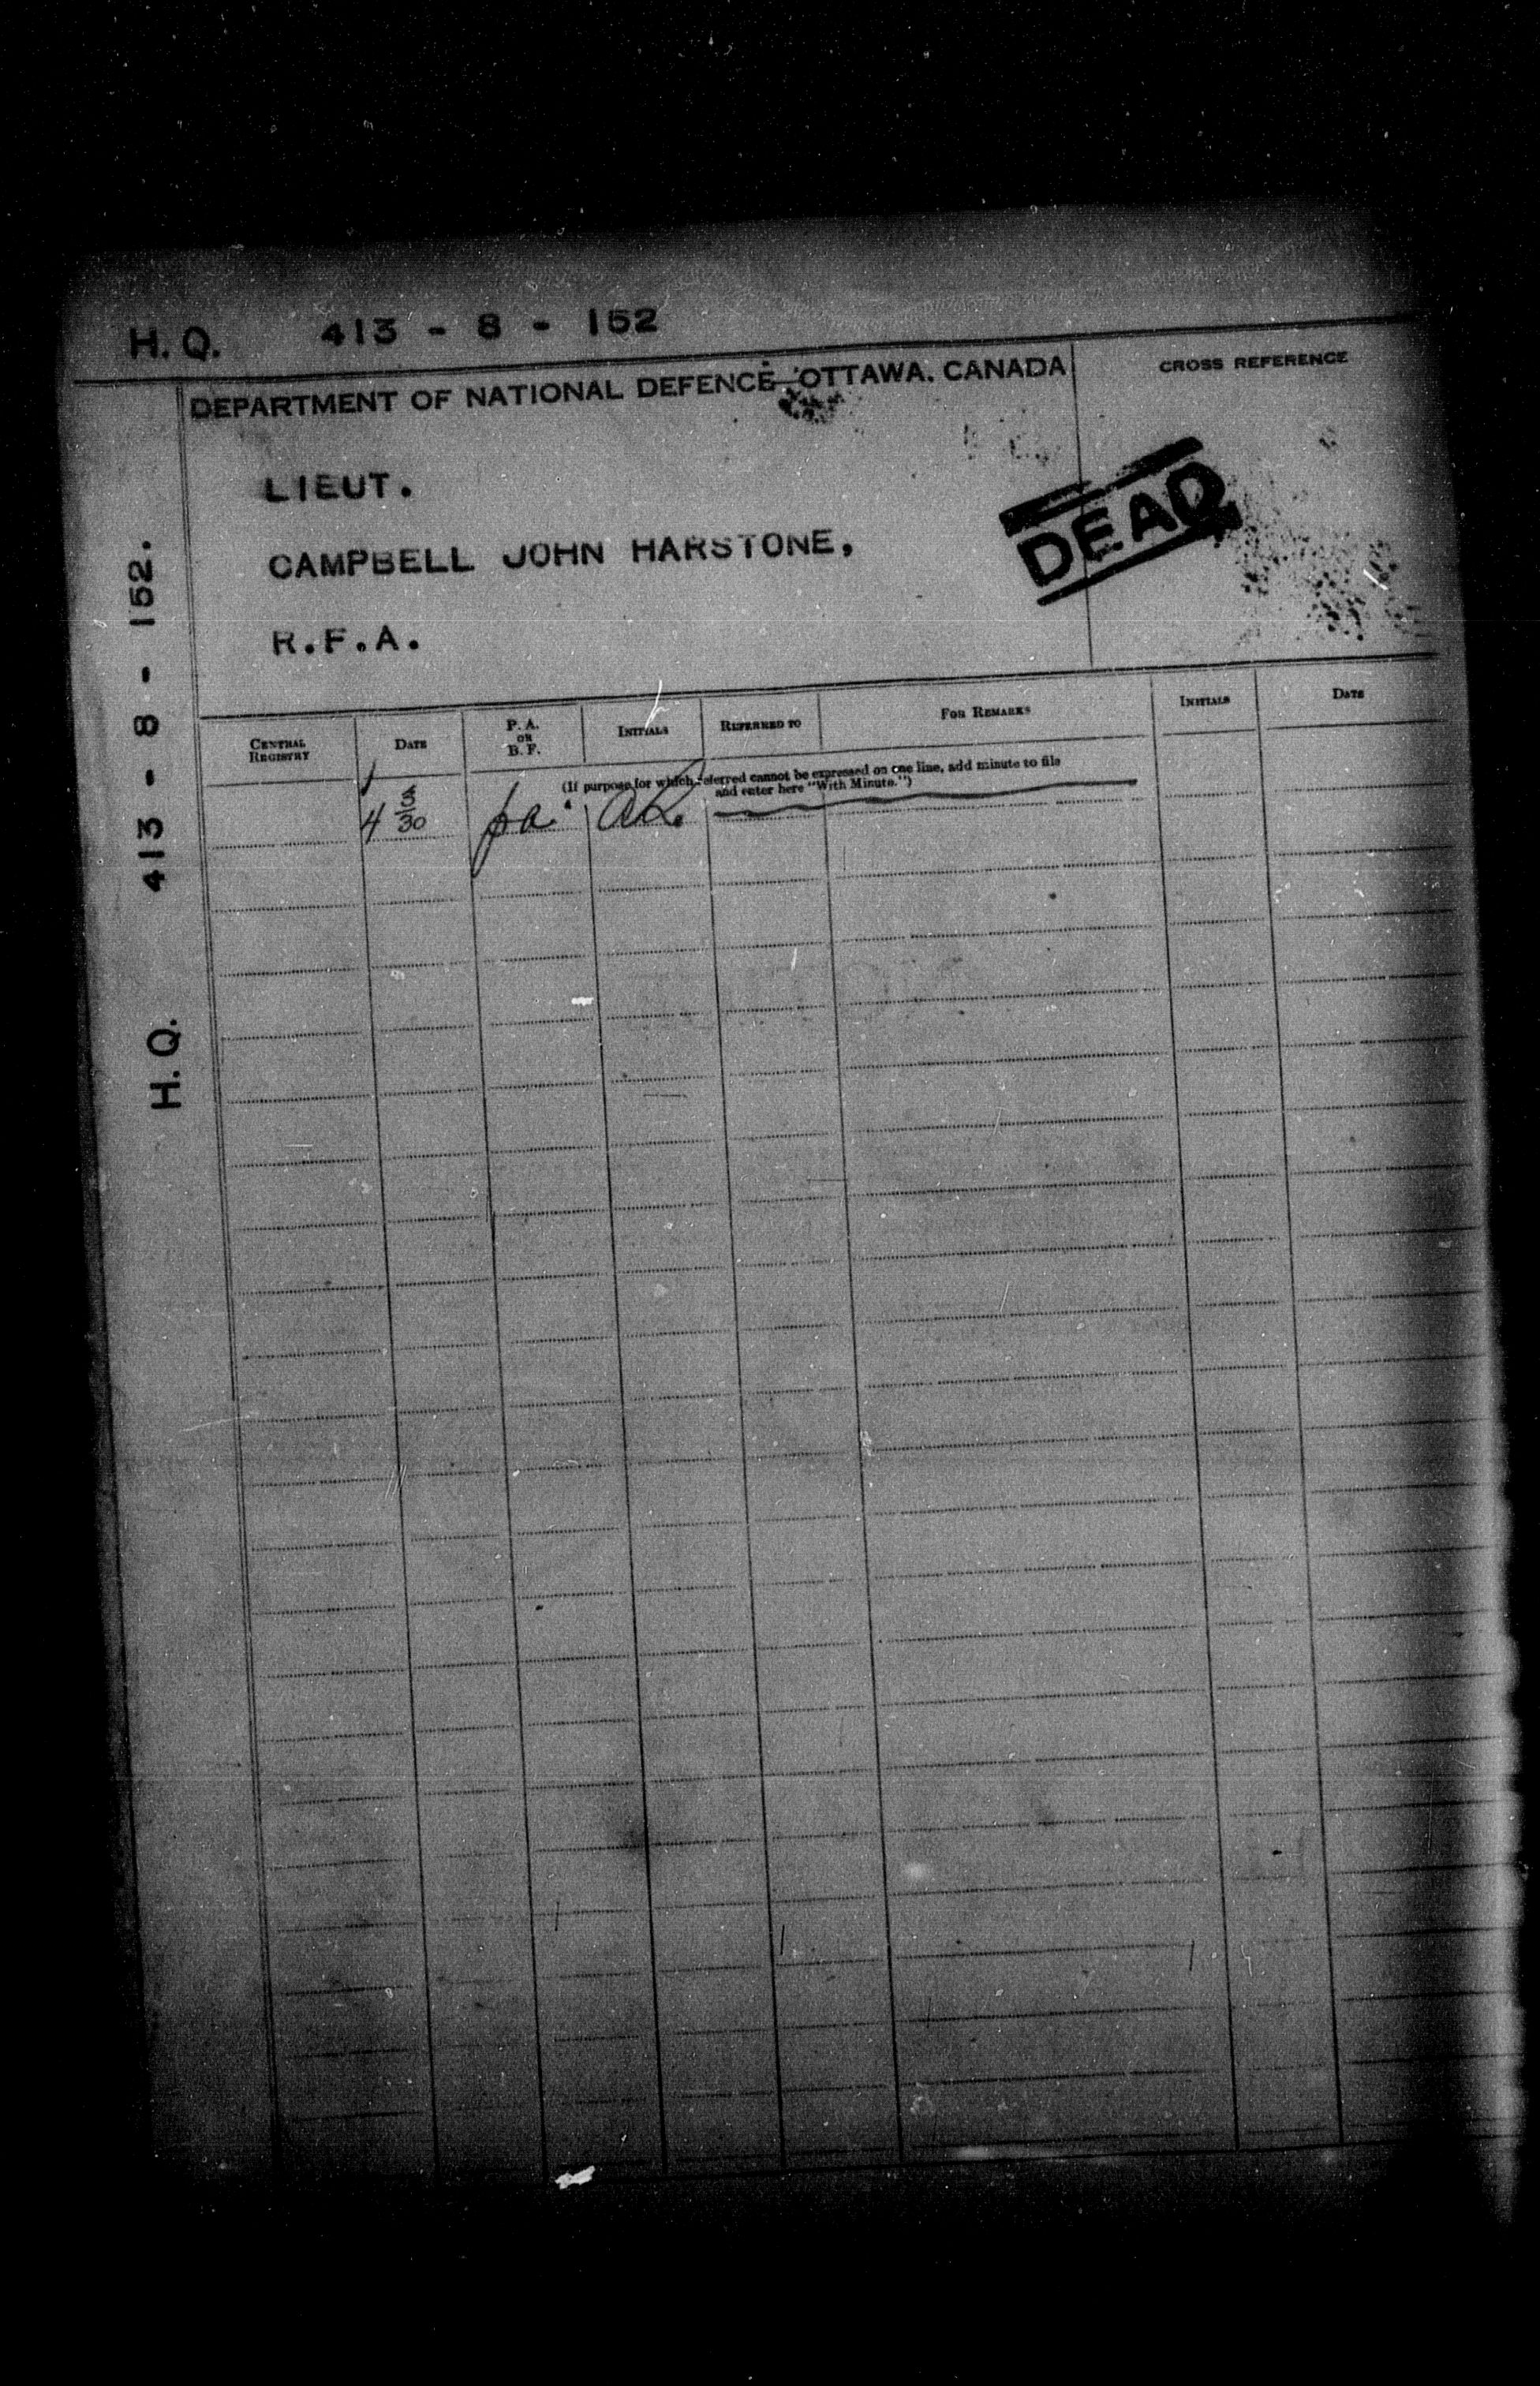 H.Q. 413 - 8 - 152
DEPARTMENT OF NATIONAL DEFENCE—OTTAWA. CANADA
CROSS REFERENCE
LIEUT.
CAMPBELL JOHN HARSTONE,
R.F.A.
DEAD
H.Q. 413 - 8 - 152.
CENTRAL REGISTRY
DATE
P. A. OR B. F.
INITIALS
REFERRED TO
FOR REMARKS
INITIALS
DATE
(If purpose for which referred cannot be expressed on one line, add minute to file
and enter here "With Minute.")
4 30 pa.